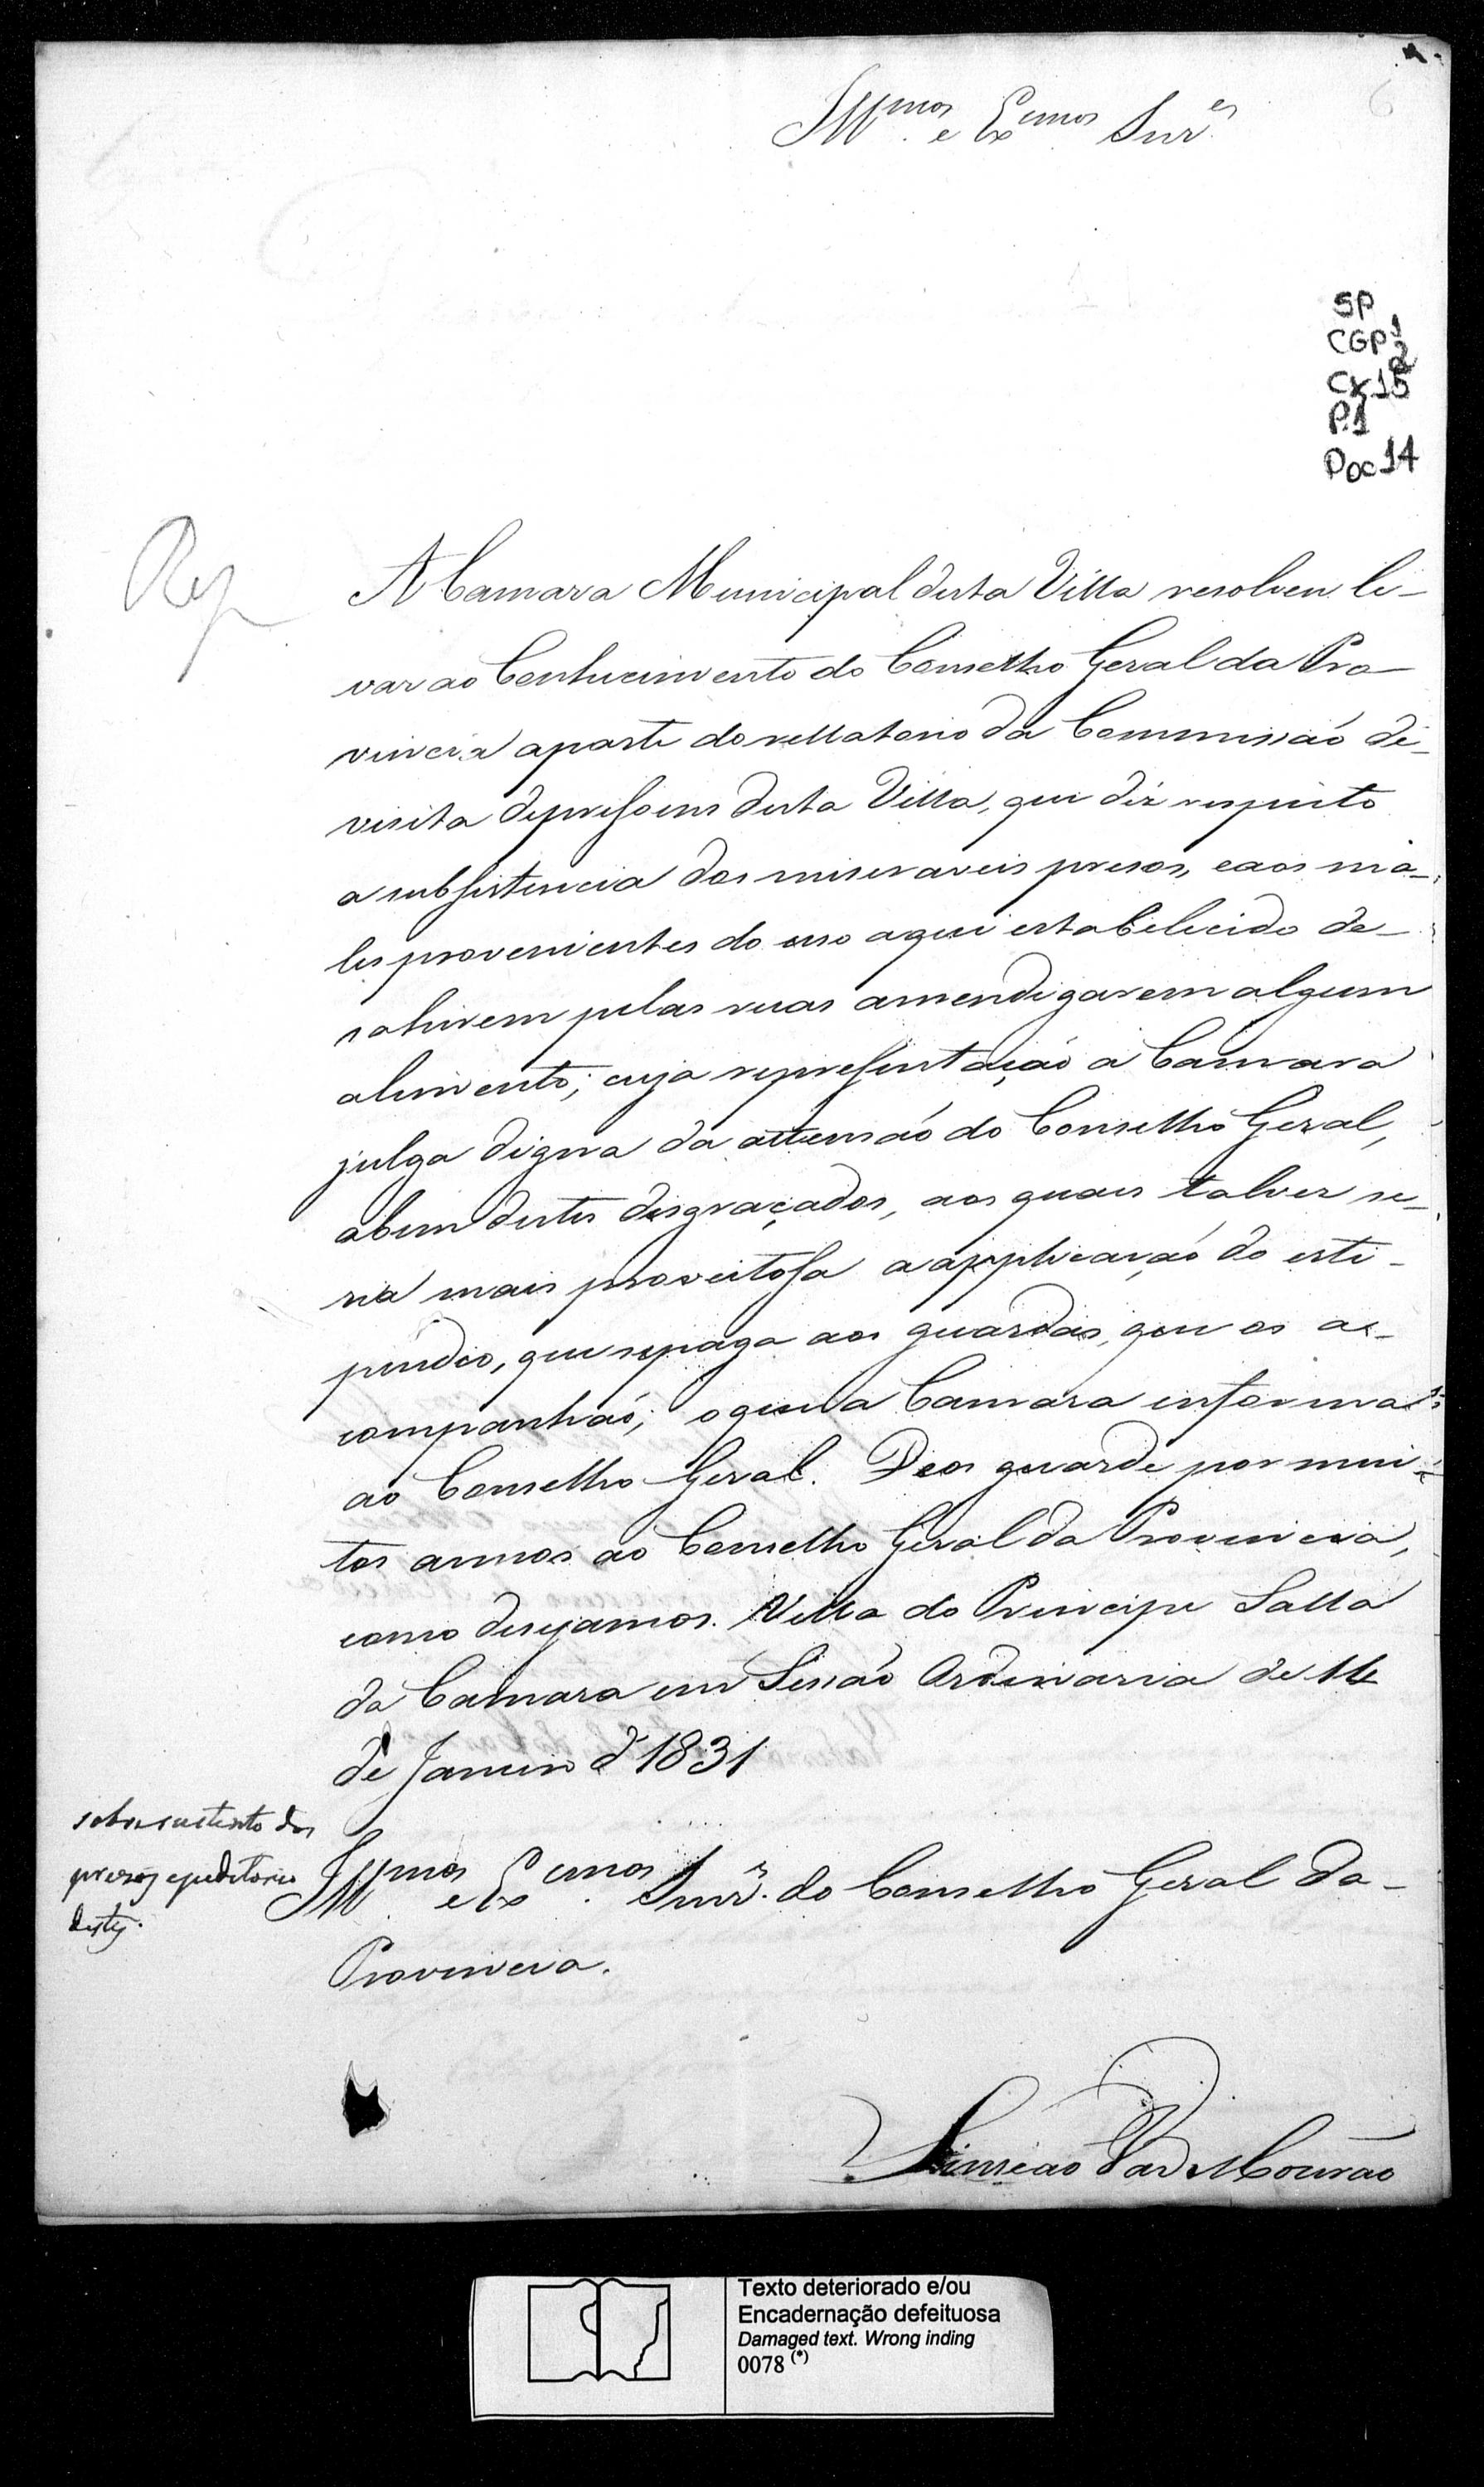 Illmos. e Exmos. Snres.
6
SP
CGP1
2
Cx15
P.1
Doc14
Rep
A Camara Municipal desta Villa resolveu le-
var ao Conhecimento do Conselho Geral da Pro-
vincia aparte do rellatorio da Commissaõ de-
visita deprisoens desta Villa, que diz respeito
a subsistencia dos miseraveis presos, eaos ma-
les provenientes do uso aqui estabelecido de-
sahirem pelas ruas amendigarem algum
alimento; cuja representaçaõ a Camara
julga digna da attensaõ do Conselho Geral,
abem destes desgraçados, aos quaes talvez se-
ria mais proveitosa aapplicaçaõ do esti-
pendio, que sepaga aos guardas, que os ac-
companhaõ; oque a Camara informa
ao Conselho Geral. Deos guarde por mui-
tos annos ao Conselho Geral da Provincia,
como desejamos. Villa do Principe Salla
da Camara em Sessaõ Ordinaria de 14
de Janeiro d' 1831
sobre sustento dos
presos, epeditorio
destes.
Illmos. e Exmos. Snres. do Conselho Geral da-
Provincia.
Simeaõ Vaz Mouraõ
Texto deteriorado e/ou
Encadernação defeituosa
Damaged text. Wrong inding
0078 (*)